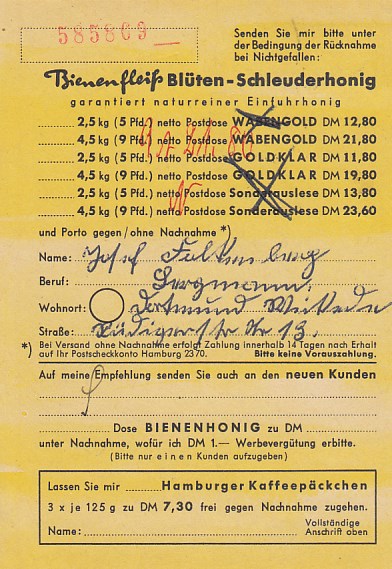 585809
Senden Sie mir bitte unter
der Bedingung der Rücknahme
bei Nichtgefallen:
Bienenfleiß Blüten-Schleuderhonig
garantiert naturreiner Einfuhrhonig
........ 2,5 kg (5 Pfd.) netto Postdose WABENGOLD DM 12,80
........ 4,5 kg (9 Pfd.) netto Postdose WABENGOLD DM 21,80
........ 2,5 kg (5 Pfd.) netto Postdose GOLDKLAR DM 11,80
........ 4,5 kg (9 Pfd.) netto Postdose GOLDKLAR DM 19,80
........ 2,5 kg (5 Pfd.) netto Postdose Sonderauslese DM 13,80
........ 4,5 kg (9 Pfd.) netto Postdose Sonderauslese DM 23,60
und Porto gegen/ohne Nachnahme *)
Name: Josef Falkenberg
Beruf: Bergmann.
Wohnort: Dortmund
Straße: Rüdigerstr Nr 13.
*) Bei Versand ohne Nachnahme erfolgt Zahlung innerhalb 14 Tagen nach Erhalt
auf Ihr Postscheckkonto Hamburg 2370. Bitte keine Vorauszahlung.
Auf meine Empfehlung senden Sie auch an den neuen Kunden
Dose BIENENHONIG zu DM
unter Nachnahme, wofür ich DM 1.— Werbevergütung erbitte.
(Bitte nur einen Kunden aufzugeben)
Lassen Sie mir ........ Hamburger Kaffeepäckchen
3 x je 125 g zu DM 7,30 frei gegen Nachnahme zugehen.
Name: Vollständige
Anschrift oben